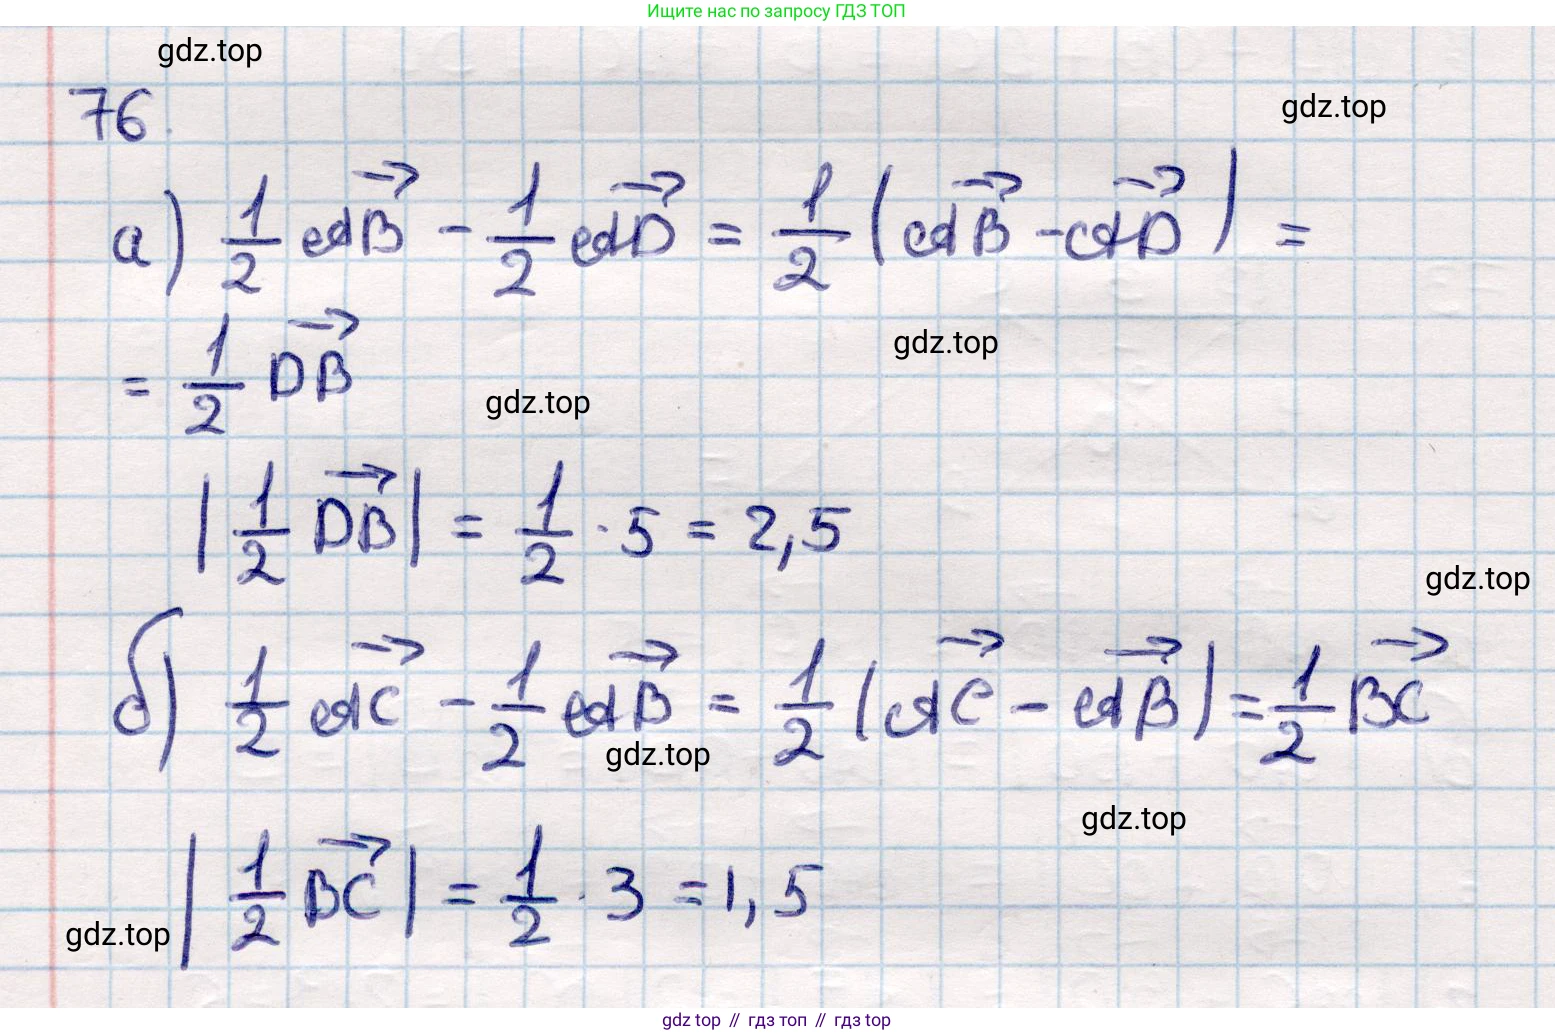 Ищите нас по запросу ГДЗ ТОП
gdz.top
76.
gdz.top
а) 1/2 AB⃗ - 1/2 AD⃗ = 1/2 (AB⃗ - AD⃗) =
= 1/2 DB⃗
gdz.top
gdz.top
|1/2 DB⃗| = 1/2 · 5 = 2,5
gdz.top
б) 1/2 AC⃗ - 1/2 AB⃗ = 1/2 (AC⃗ - AB⃗) = 1/2 BC⃗
gdz.top
gdz.top
|1/2 BC⃗| = 1/2 · 3 = 1,5
gdz.top
gdz top // гдз топ // гдз top